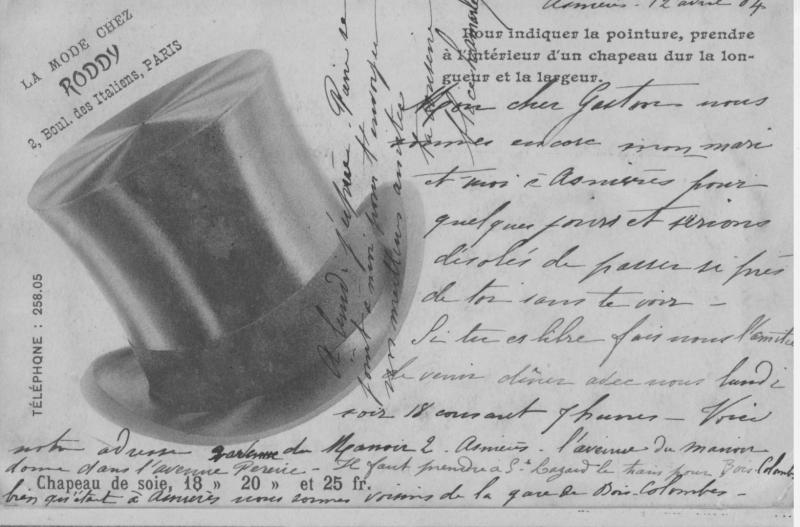 LA MODE CHEZ
RODDY
2, Boul. des Italiens, PARIS
TÉLÉPHONE : 258.05
Pour indiquer la pointure, prendre
à l'intérieur d'un chapeau dur la lon-
gueur et la largeur.
Asnières. 12 avril 04
Mon cher Gaston nous
sommes encore mon mari
et moi à Asnières pour
quelques jours et serions
désolés de passer si près
de toi sans te voir –
Si tu es libre fais nous l'amitié
de venir dîner avec nous lundi
soir 18 courant 7 heures – Voici
notre adresse avenue du Manoir 2. Asnières. l'avenue du manoir
donne dans l'avenue Pereire – Il faut prendre à St Lazare le train pour Bois Colombes
bien qu'étant à Asnières nous sommes voisins de la gare de Bois-Colombes –
Chapeau de soie, 18 » 20 » et 25 fr.
A lundi j'espère. Pierre se
joint à moi pour t'envoyer
nos meilleures amitiés
ta cousine